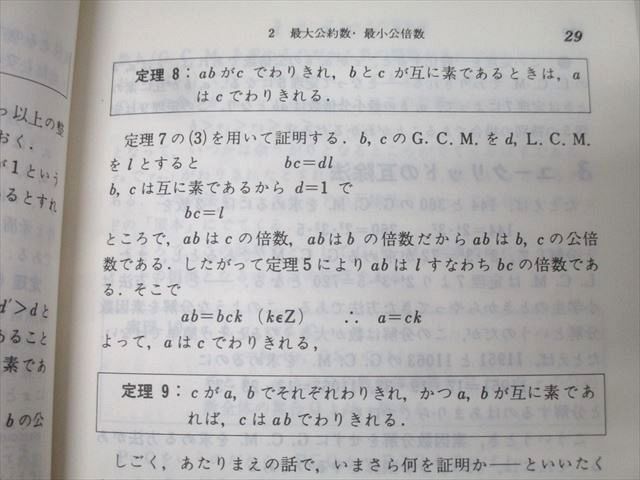 2 最大公約数・最小公倍数 29
定理 8：ab が c でわりきれ，b と c が互に素であるときは，a
は c でわりきれる．
定理 7 の (3) を用いて証明する．b, c の G. C. M. を d, L. C. M.
を l とすると bc=dl
b, c は互に素であるから d=1 で
bc=l
ところで，ab は c の倍数，ab は b の倍数だから ab は b, c の公倍
数である．したがって定理 5 により ab は l すなわち bc の倍数であ
る．そこで
ab=bck (kεZ) ∴ a=ck
よって，a は c でわりきれる，
定理 9：c が a, b でそれぞれわりきれ，かつ a, b が互に素であ
れば，c は ab でわりきれる．
しごく，あたりまえの話で，いまさら何を証明か——といいたく
っ以上の整
おく．
が 1 という
あるとすれ
d'>d と
あること
素であ
b の公